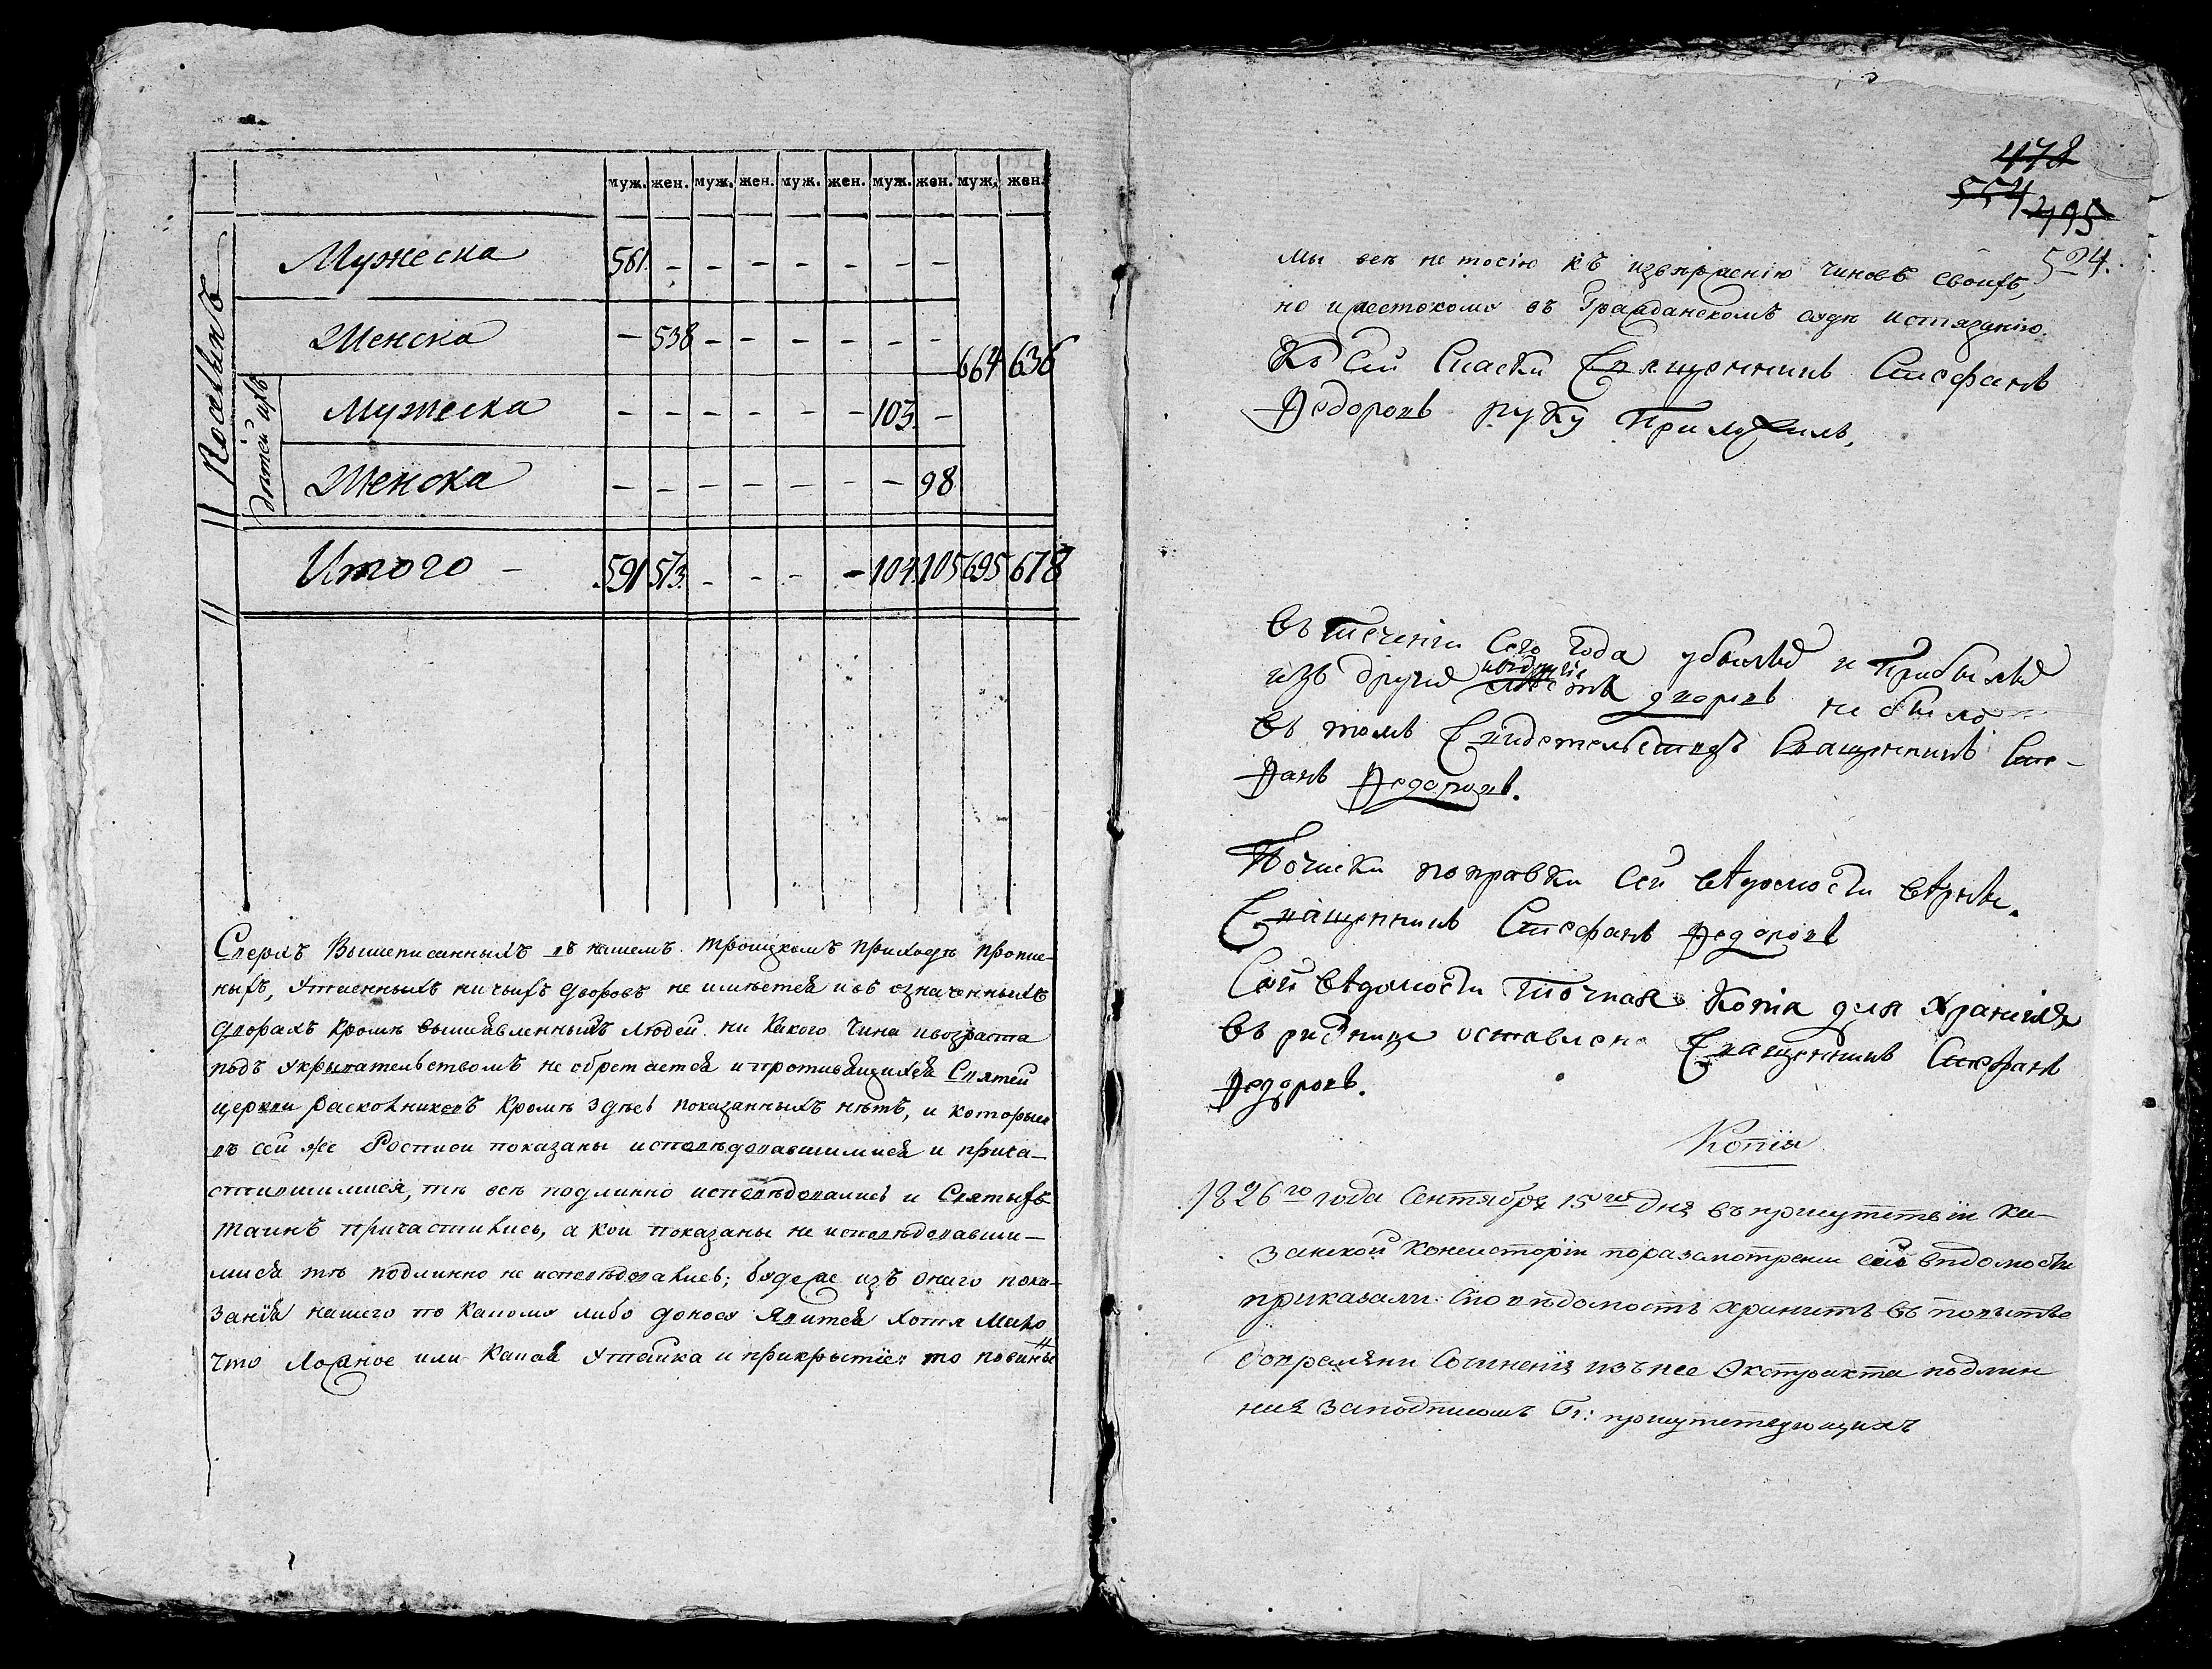 муж. жен. муж. жен. муж. жен. муж. жен. муж. жен.
Мужеска 561. - - - - - - -
Женска - 538 - - - - - - 664 636
дѣтей ихъ
Мужеска - - - - - - 103. -
Женска - - - - - - - 98
Итого - 591 573. - - - - 104. 105 695 678
Сверхъ Вышеписанныхъ въ нашемъ троицкомъ приходѣ пропис-
ныхъ, Утаенныхъ ничьихъ дворовъ не имѣется и въ означенныхъ
дворахъ кромѣ вышеявленныхъ людей ни какого чина и возраста
подъ укрывательствомъ не обретается и противящихся Святей
церкви расколниковъ кромѣ здѣсь показанныхъ нѣтъ, и которые
въ сей же Росписи показаны исповѣдовавшимися и прича-
стившимися, тѣ всѣ подлинно исповѣдовались и Святыхъ
таинъ причастились, а кои показаны не исповѣдовавши-
мися тѣ подлинно не исповѣдовались; буде же изъ онаго пока-
занія нашего по какому либо доносу явится хотя мало
что ложное или какая утайка и прикрытіе: то повинны
478
554 495
524.
мы всѣ не тосію къ изверженію чиновъ своихъ,
но и жестокому въ Гражданскомъ судѣ истязанію.
Къ сей Сказки Священникъ Стефанъ
Федоровъ руку приложилъ.
Въ теченіи сего года убылыхъ и прибылыхъ
изъ другихъ и въ другіе мѣста дворовъ не было
Въ томъ свидетельствуетъ Священникъ Сте-
фанъ Федоровъ.
Почиски поправки сей вѣдомости вѣрны.
Священникъ Стефанъ Федоровъ
Сей вѣдомости точная копія для храненія
въ ризнице оставлена Священникъ Стефанъ
Федоровъ.
Копія
1826го года Сентября 15го дня въ присутствіи Ка-
занской Консисторіи по разсмотрении сей вѣдомости
приказали: сію вѣдомость хранить въ повытье
до времяни сочиненія изъ нее Экстракта подлин
ная за подписомъ Гг: присутствующихъ